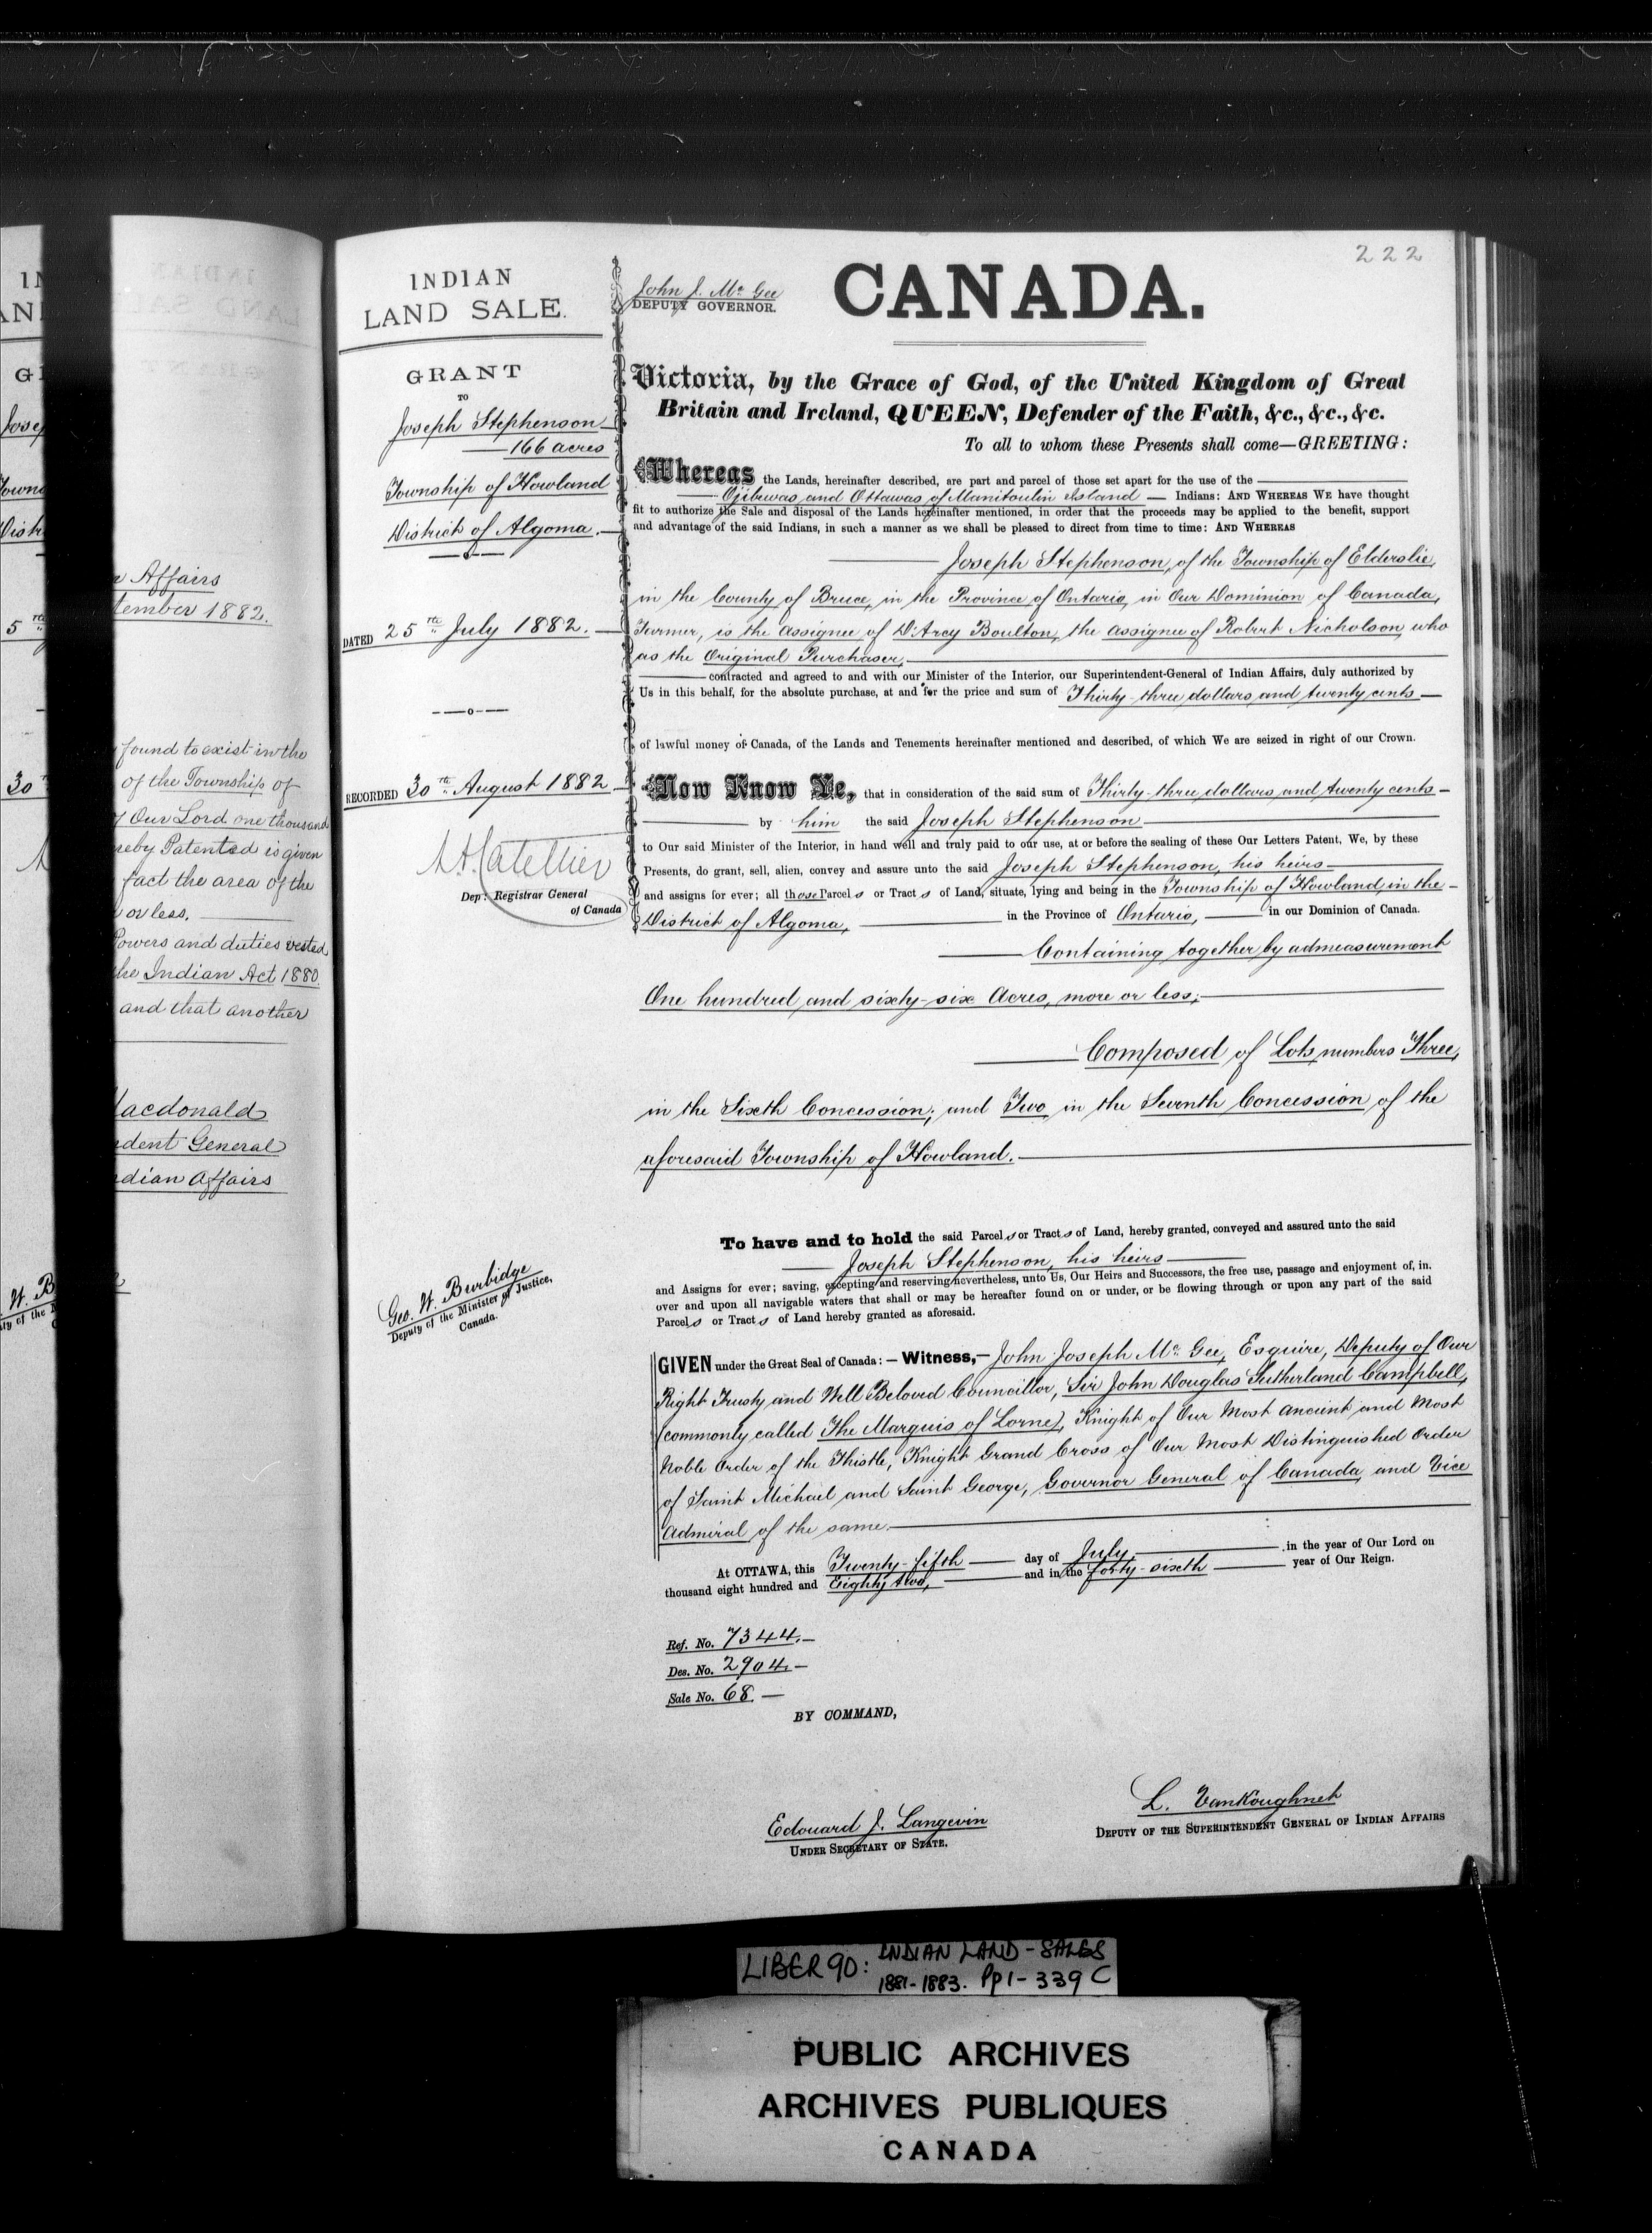 222
INDIAN
LAND SALE.
GRANT
TO
Joseph Stephenson
166 acres
Township of Howland
District of Algoma.
DATED 25th July 1882.
RECORDED 30th August 1882
Dep: Registrar General
of Canada
Geo. W. Burbidge
Deputy of the Minister of Justice,
Canada.
John J. McGee
DEPUTY GOVERNOR.
CANADA.
Victoria, by the Grace of God, of the United Kingdom of Great
Britain and Ireland, QUEEN, Defender of the Faith, &c., &c., &c.
To all to whom these Presents shall come—GREETING:
Whereas the Lands, hereinafter described, are part and parcel of those set apart for the use of the
Ojibwas and Ottawas of Manitoulin Island — Indians: AND WHEREAS WE have thought
fit to authorize the Sale and disposal of the Lands hereinafter mentioned, in order that the proceeds may be applied to the benefit, support
and advantage of the said Indians, in such a manner as we shall be pleased to direct from time to time: AND WHEREAS
Joseph Stephenson, of the Township of Elderslie,
in the County of Bruce, in the Province of Ontario, in Our Dominion of Canada,
Farmer, is the Assignee of D'Arcy Boulton, the Assignee of Robert Nicholson, who
as the Original Purchaser,
contracted and agreed to and with our Minister of the Interior, our Superintendent-General of Indian Affairs, duly authorized by
Us in this behalf, for the absolute purchase, at and for the price and sum of Thirty-three dollars and twenty cents
of lawful money of Canada, of the Lands and Tenements hereinafter mentioned and described, of which We are seized in right of our Crown.
Now Know Ye, that in consideration of the said sum of Thirty-three dollars and twenty cents
by him the said Joseph Stephenson
to Our said Minister of the Interior, in hand well and truly paid to our use, at or before the sealing of these Our Letters Patent, We, by these
Presents, do grant, sell, alien, convey and assure unto the said Joseph Stephenson, his heirs
and assigns for ever; all those Parcels or Tracts of Land, situate, lying and being in the Township of Howland, in the
District of Algoma, in the Province of Ontario, in our Dominion of Canada.
Containing together by admeasurement
One hundred and sixty-six Acres, more or less;
Composed of Lots numbers Three,
in the Sixth Concession; and Two in the Seventh Concession of the
aforesaid Township of Howland.
To have and to hold the said Parcels or Tracts of Land, hereby granted, conveyed and assured unto the said
Joseph Stephenson, his heirs
and Assigns for ever; saving, excepting and reserving nevertheless, unto Us, Our Heirs and Successors, the free use, passage and enjoyment of, in.
over and upon all navigable waters that shall or may be hereafter found on or under, or be flowing through or upon any part of the said
Parcels or Tracts of Land hereby granted as aforesaid.
GIVEN under the Great Seal of Canada: — Witness,— John Joseph McGee, Esquire, Deputy of Our
Right Trusty and Well Beloved Councillor, Sir John Douglas Sutherland Campbell,
(commonly called The Marquis of Lorne), Knight of Our Most Ancient and Most
Noble Order of the Thistle, Knight Grand Cross of Our Most Distinguished Order
of Saint Michael and Saint George, Governor General of Canada and Vice
Admiral of the same.
At OTTAWA, this Twenty-fifth day of July, in the year of Our Lord on
thousand eight hundred and Eighty two, and in the forty-sixth year of Our Reign.
Ref. No. 7344.
Des. No. 2904.
Sale No. 68.
BY COMMAND,
Edouard J. Langevin
UNDER SECRETARY OF STATE.
L. VanKoughnet
DEPUTY OF THE SUPERINTENDENT GENERAL OF INDIAN AFFAIRS
Affairs
tember 1882.
found to exist in the
of the Township of
Our Lord one thousand
reby Patented is given
fact the area of the
or less.
Powers and duties vested
the Indian Act 1880.
and that another
acdonald
dent General
dian Affairs
LIBER 90: INDIAN LAND-SALES
1881-1883. Pp 1-339 C
PUBLIC ARCHIVES
ARCHIVES PUBLIQUES
CANADA